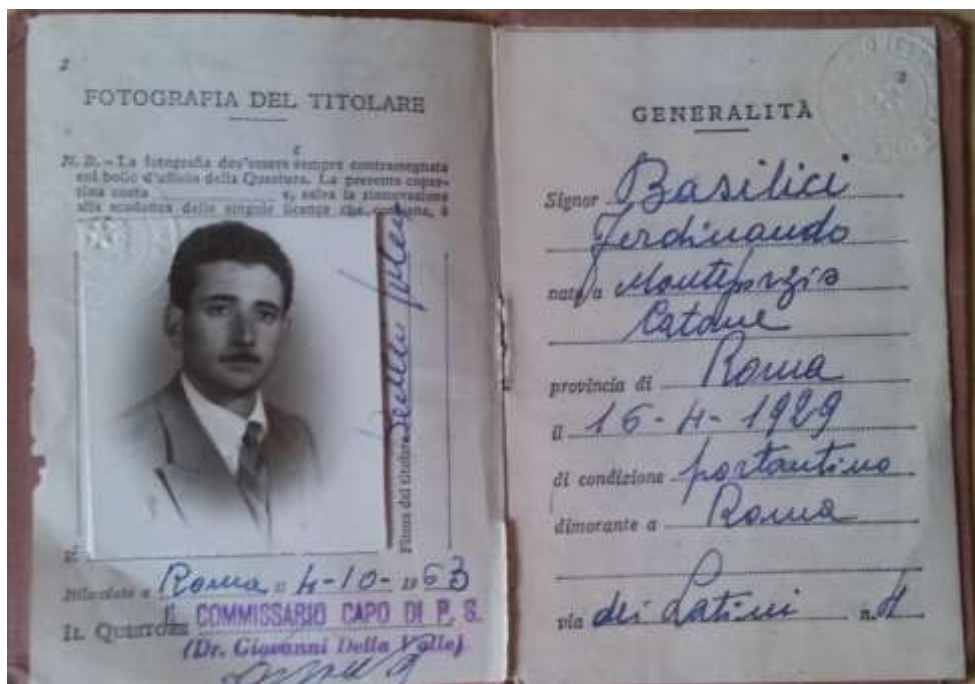 2
FOTOGRAFIA DEL TITOLARE
N. B. - La fotografia dev'essere sempre contrassegnata
col bollo d'ufficio della Questura. La presente coper-
tina costa e, salva la rinnovazione
alla scadenza delle singole licenze che contiene, è
Firma del titolare
Rilasciato a Roma il 4-10-1963
IL QUESTORE IL COMMISSARIO CAPO DI P. S.
(Dr. Giovanni Della Valle)
3
GENERALITÀ
Signor Basilici
Ferdinando
nato a Monteporzio
Catone
provincia di Roma
il 16-4-1929
di condizione portantino
dimorante a Roma
via dei Latini n. 4